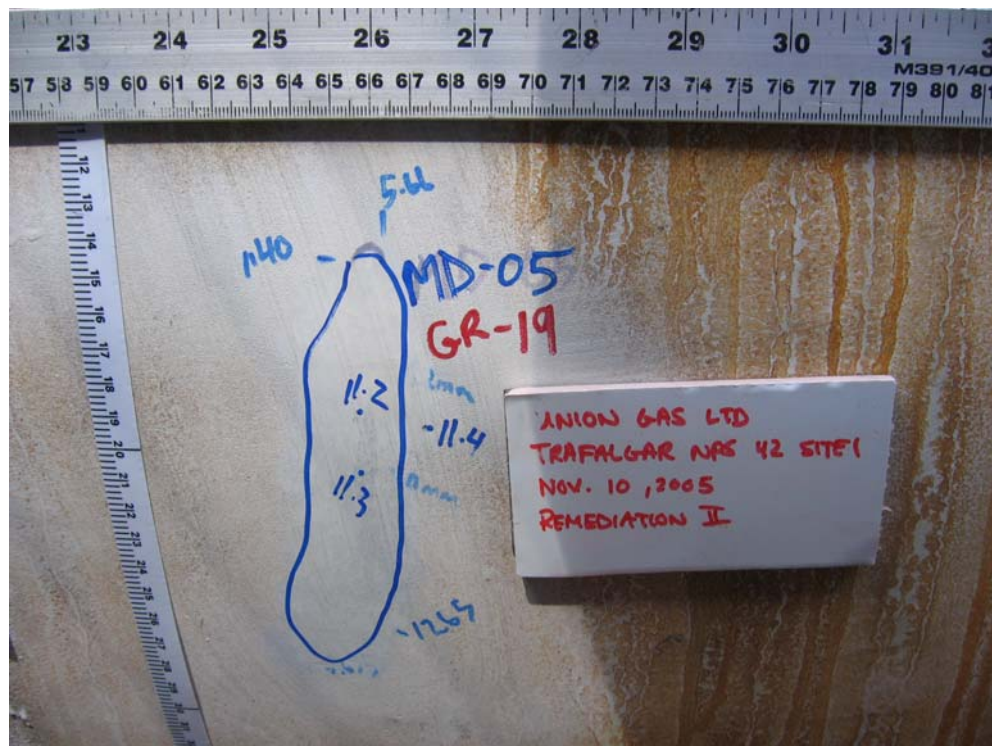 23 24 25 26 27 28 29 30 31
M391/40
57 58 59 60 61 62 63 64 65 66 67 68 69 70 71 72 73 74 75 76 77 78 79 80
12
13
14
15
16
17
18
19
20
21
22
23
24
25
26
27
28
29
5.66
1.40
MD-05
GR-19
11.2
-11.4
11.3
UNION GAS LTD
TRAFALGAR NPS 42 SITE 1
NOV. 10, 2005
REMEDIATION II